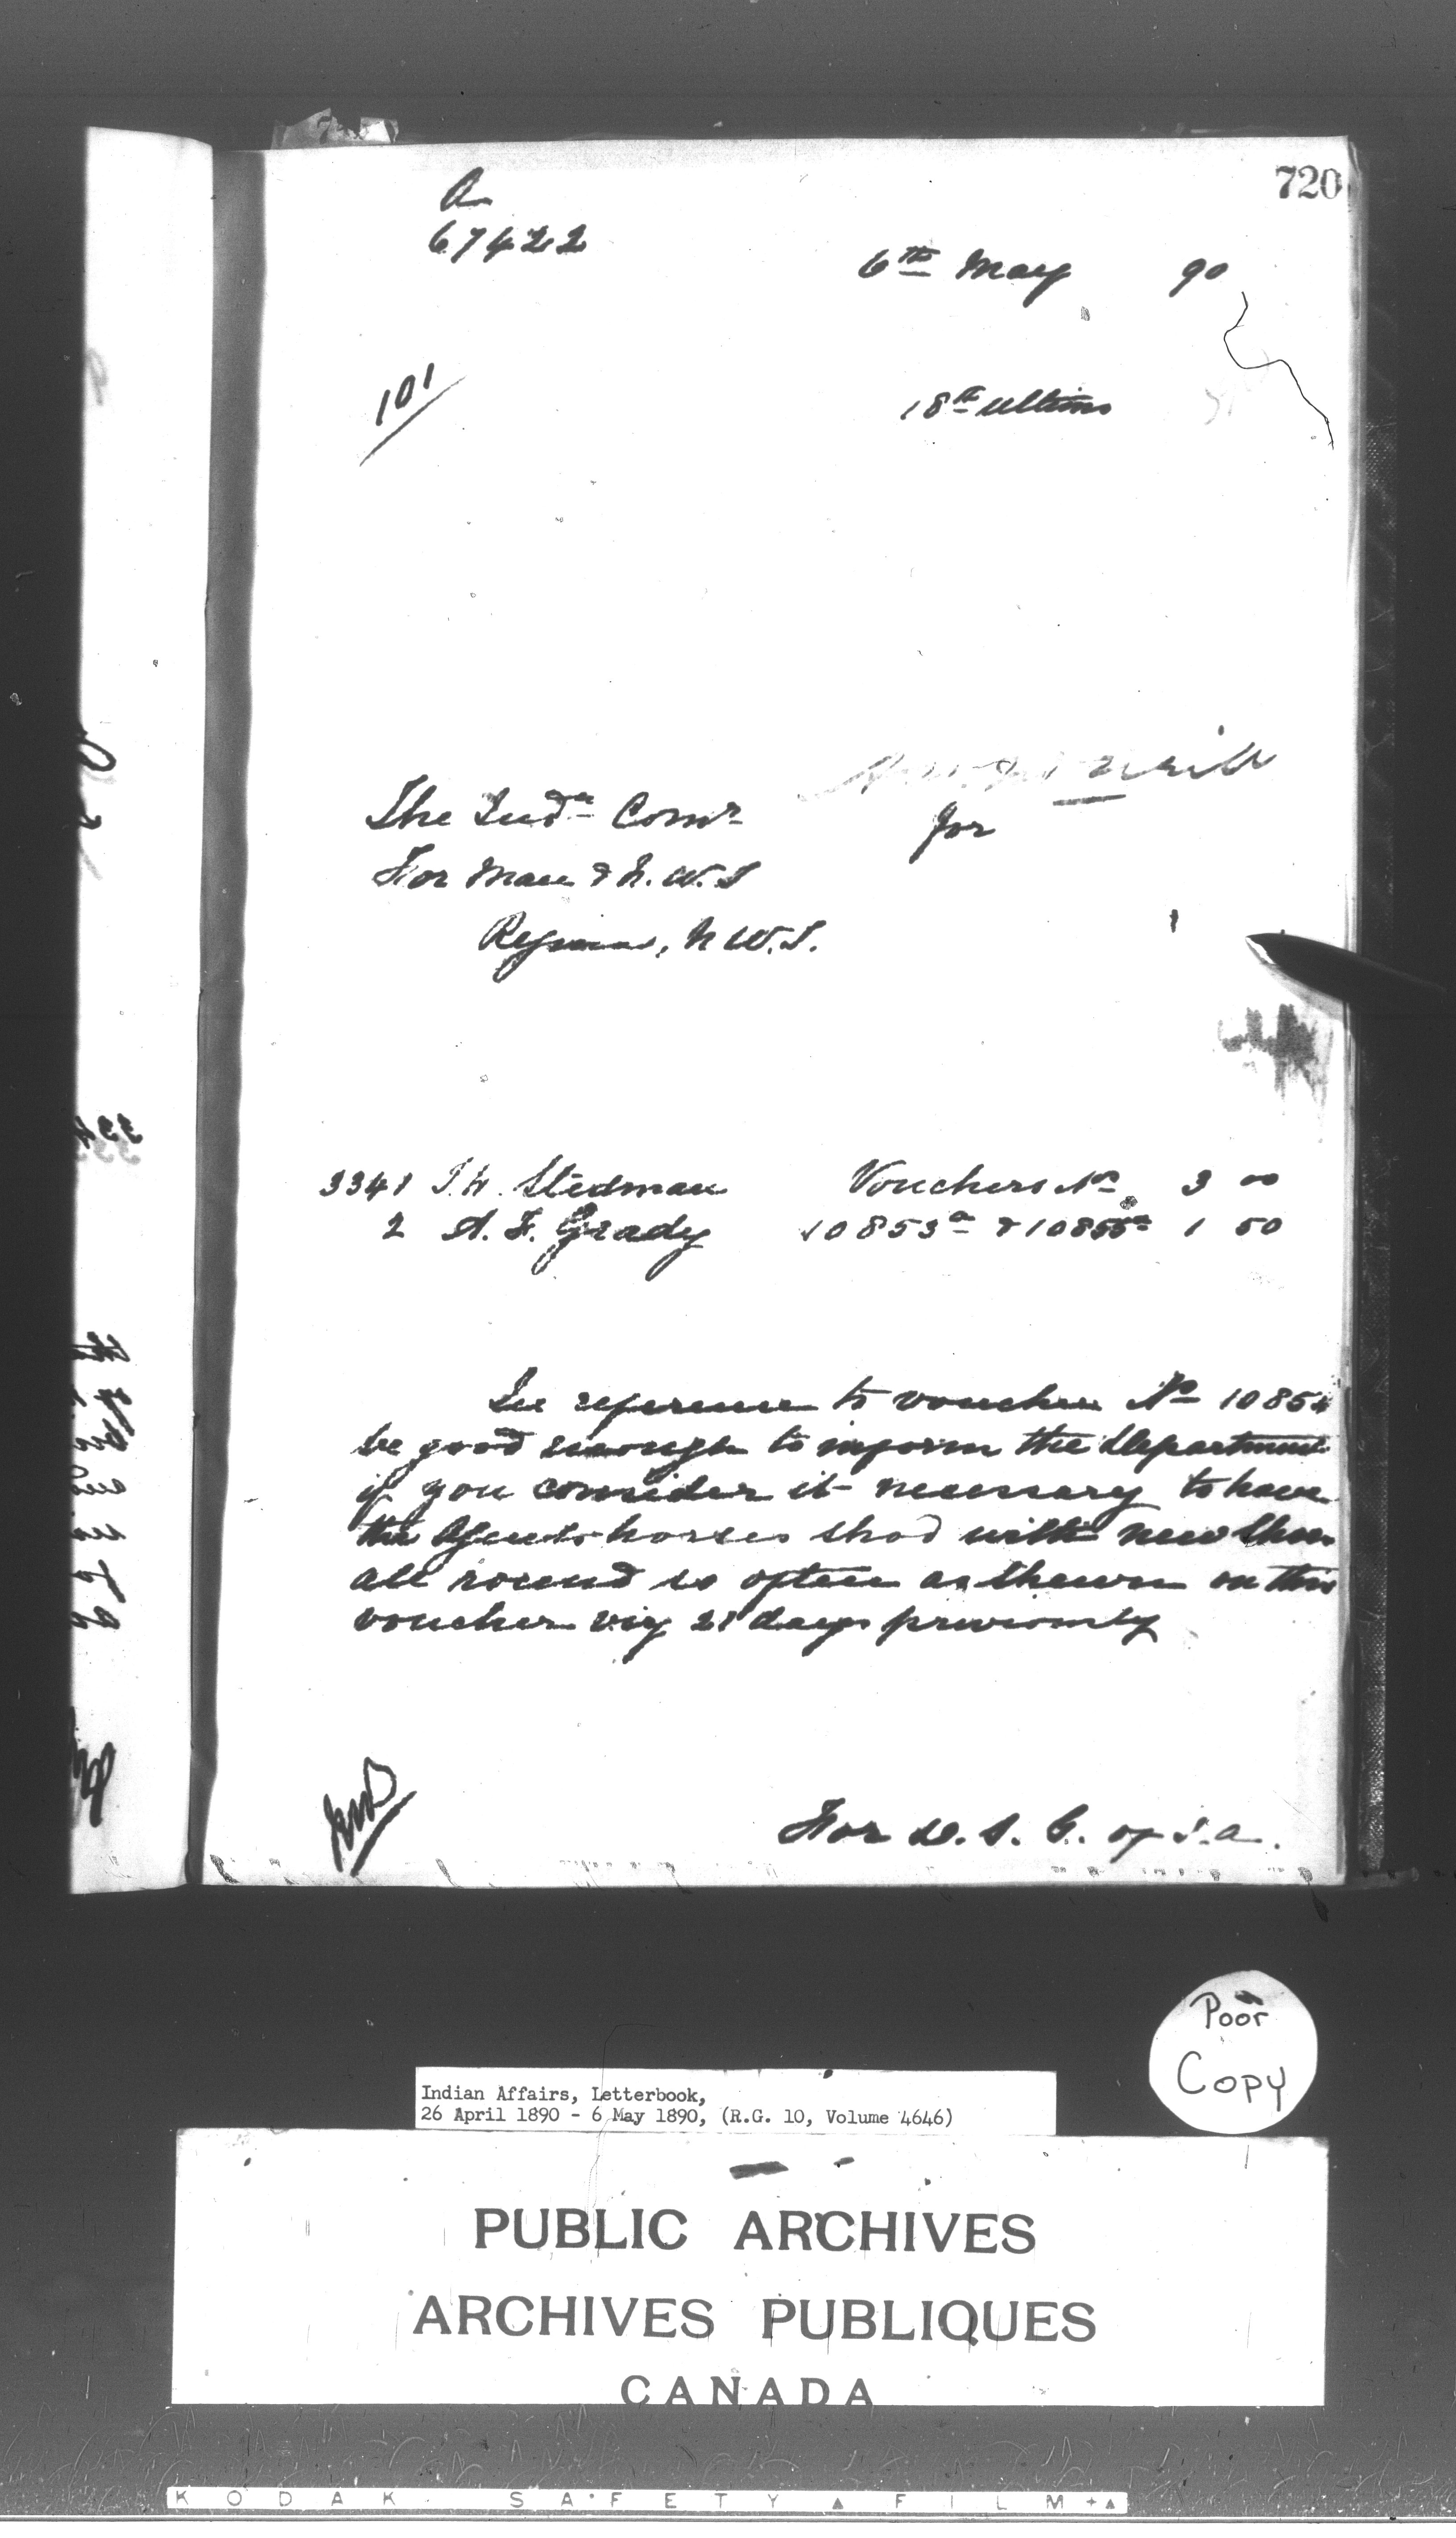 720
A
67422
6th May 90
101
18th ultimo
The Indn Comr
for
For Man & N.W.T
Regina, N.W.T.
3341 J.W. Stedman Vouchers No 3 00
2 A. F. Grady 10853a & 10855a 1 50
In reference to voucher No 10854
be good enough to inform the Department
if you consider it necessary to have
the Agents horses shod with new shoes
all round so often as shewn on this
voucher viz 21 days previously
For D. S. G. of I. A.
Poor
Copy
Indian Affairs, Letterbook,
26 April 1890 - 6 May 1890, (R.G. 10, Volume 4646)
PUBLIC ARCHIVES
ARCHIVES PUBLIQUES
CANADA
KODAK SAFETY FILM